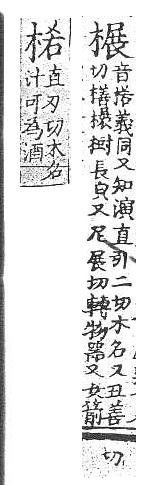 榐
音搭義同又知演直引二切木名又丑善
切榐樹長皃又尼展切轉物器又女箭
切
直刃切木名
汁可為酒